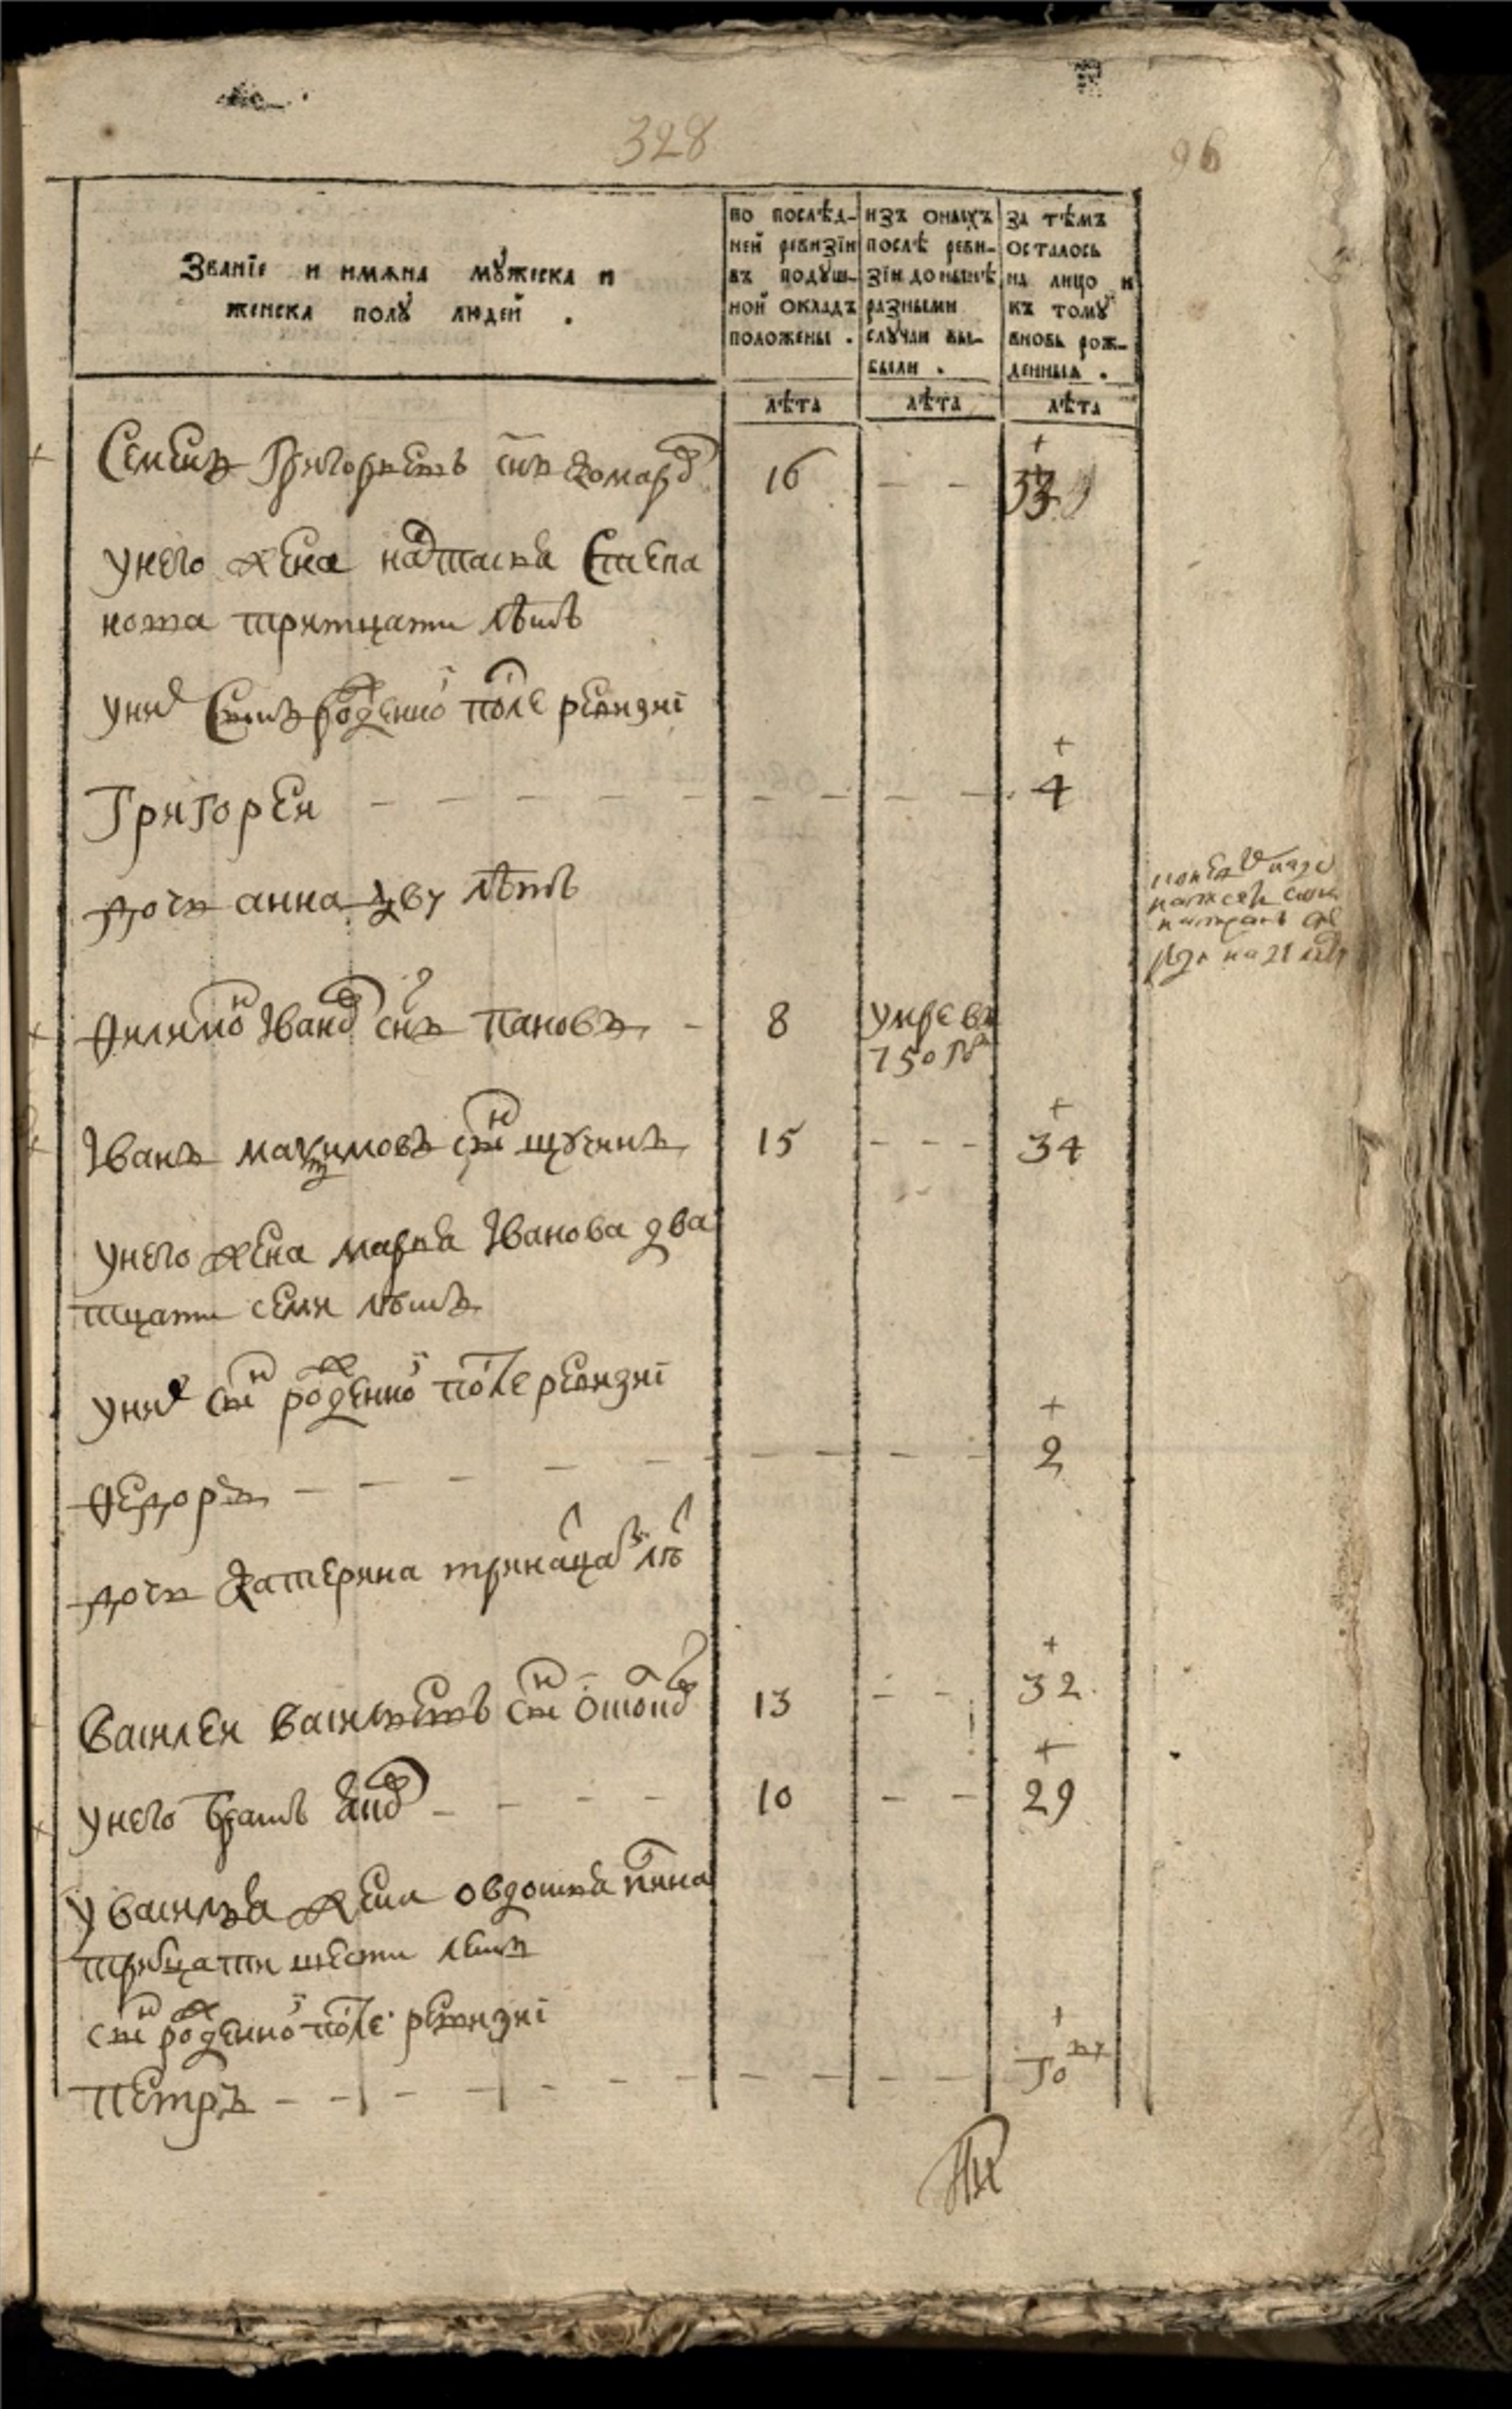 328
96
Званїе и имѧна мужеска и
женска полу людей .
по послѣд-
ней ревизїи
въ подуш-
ной окладъ
положены .
изъ оныхъ
послѣ реви-
зїи до нынѣ
разными
случаи вы-
были .
за тѣмъ
осталось
на лицо и
къ тому
вновь рож-
денныя .
лѣта лѣта лѣта
Семенъ Григорьевъ снъ 16 - - 33
у него жена настасья Степа
нова тритцати лѣтъ
у них сынъ рожденной после ревизиї
Григореи - - - 4
дочь анна дву лѣтъ
Филимон Iванов снъ Пановъ - 8 умре въ
750 г
Iванъ макъимовъ снъ щукинъ 15 - - - 34
у него жена марья Iванова два
тцати семи лѣтъ
у них снъ рожденной после ревизиї
Федоръ - - - 2
дочь Катерина тринацат лѣ
Василеи Васильевъ снъ 13 - - 32
у него братъ - - - 10 - - 29
у Василья жена овдотья
тритцати шести летъ
снъ рожденной после ревизиї
Петръ - - - го